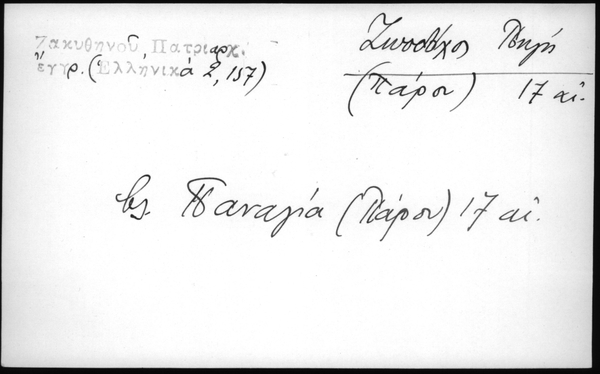 Ζακυθηνοῦ, Πατριαρχ.
ἔγγρ. (Ἑλληνικὰ 2, 157)
Ζωοδόχος Πηγή
(Πάρου) 17 αἰ.
βλ. Παναγία (Πάρου) 17 αἰ.